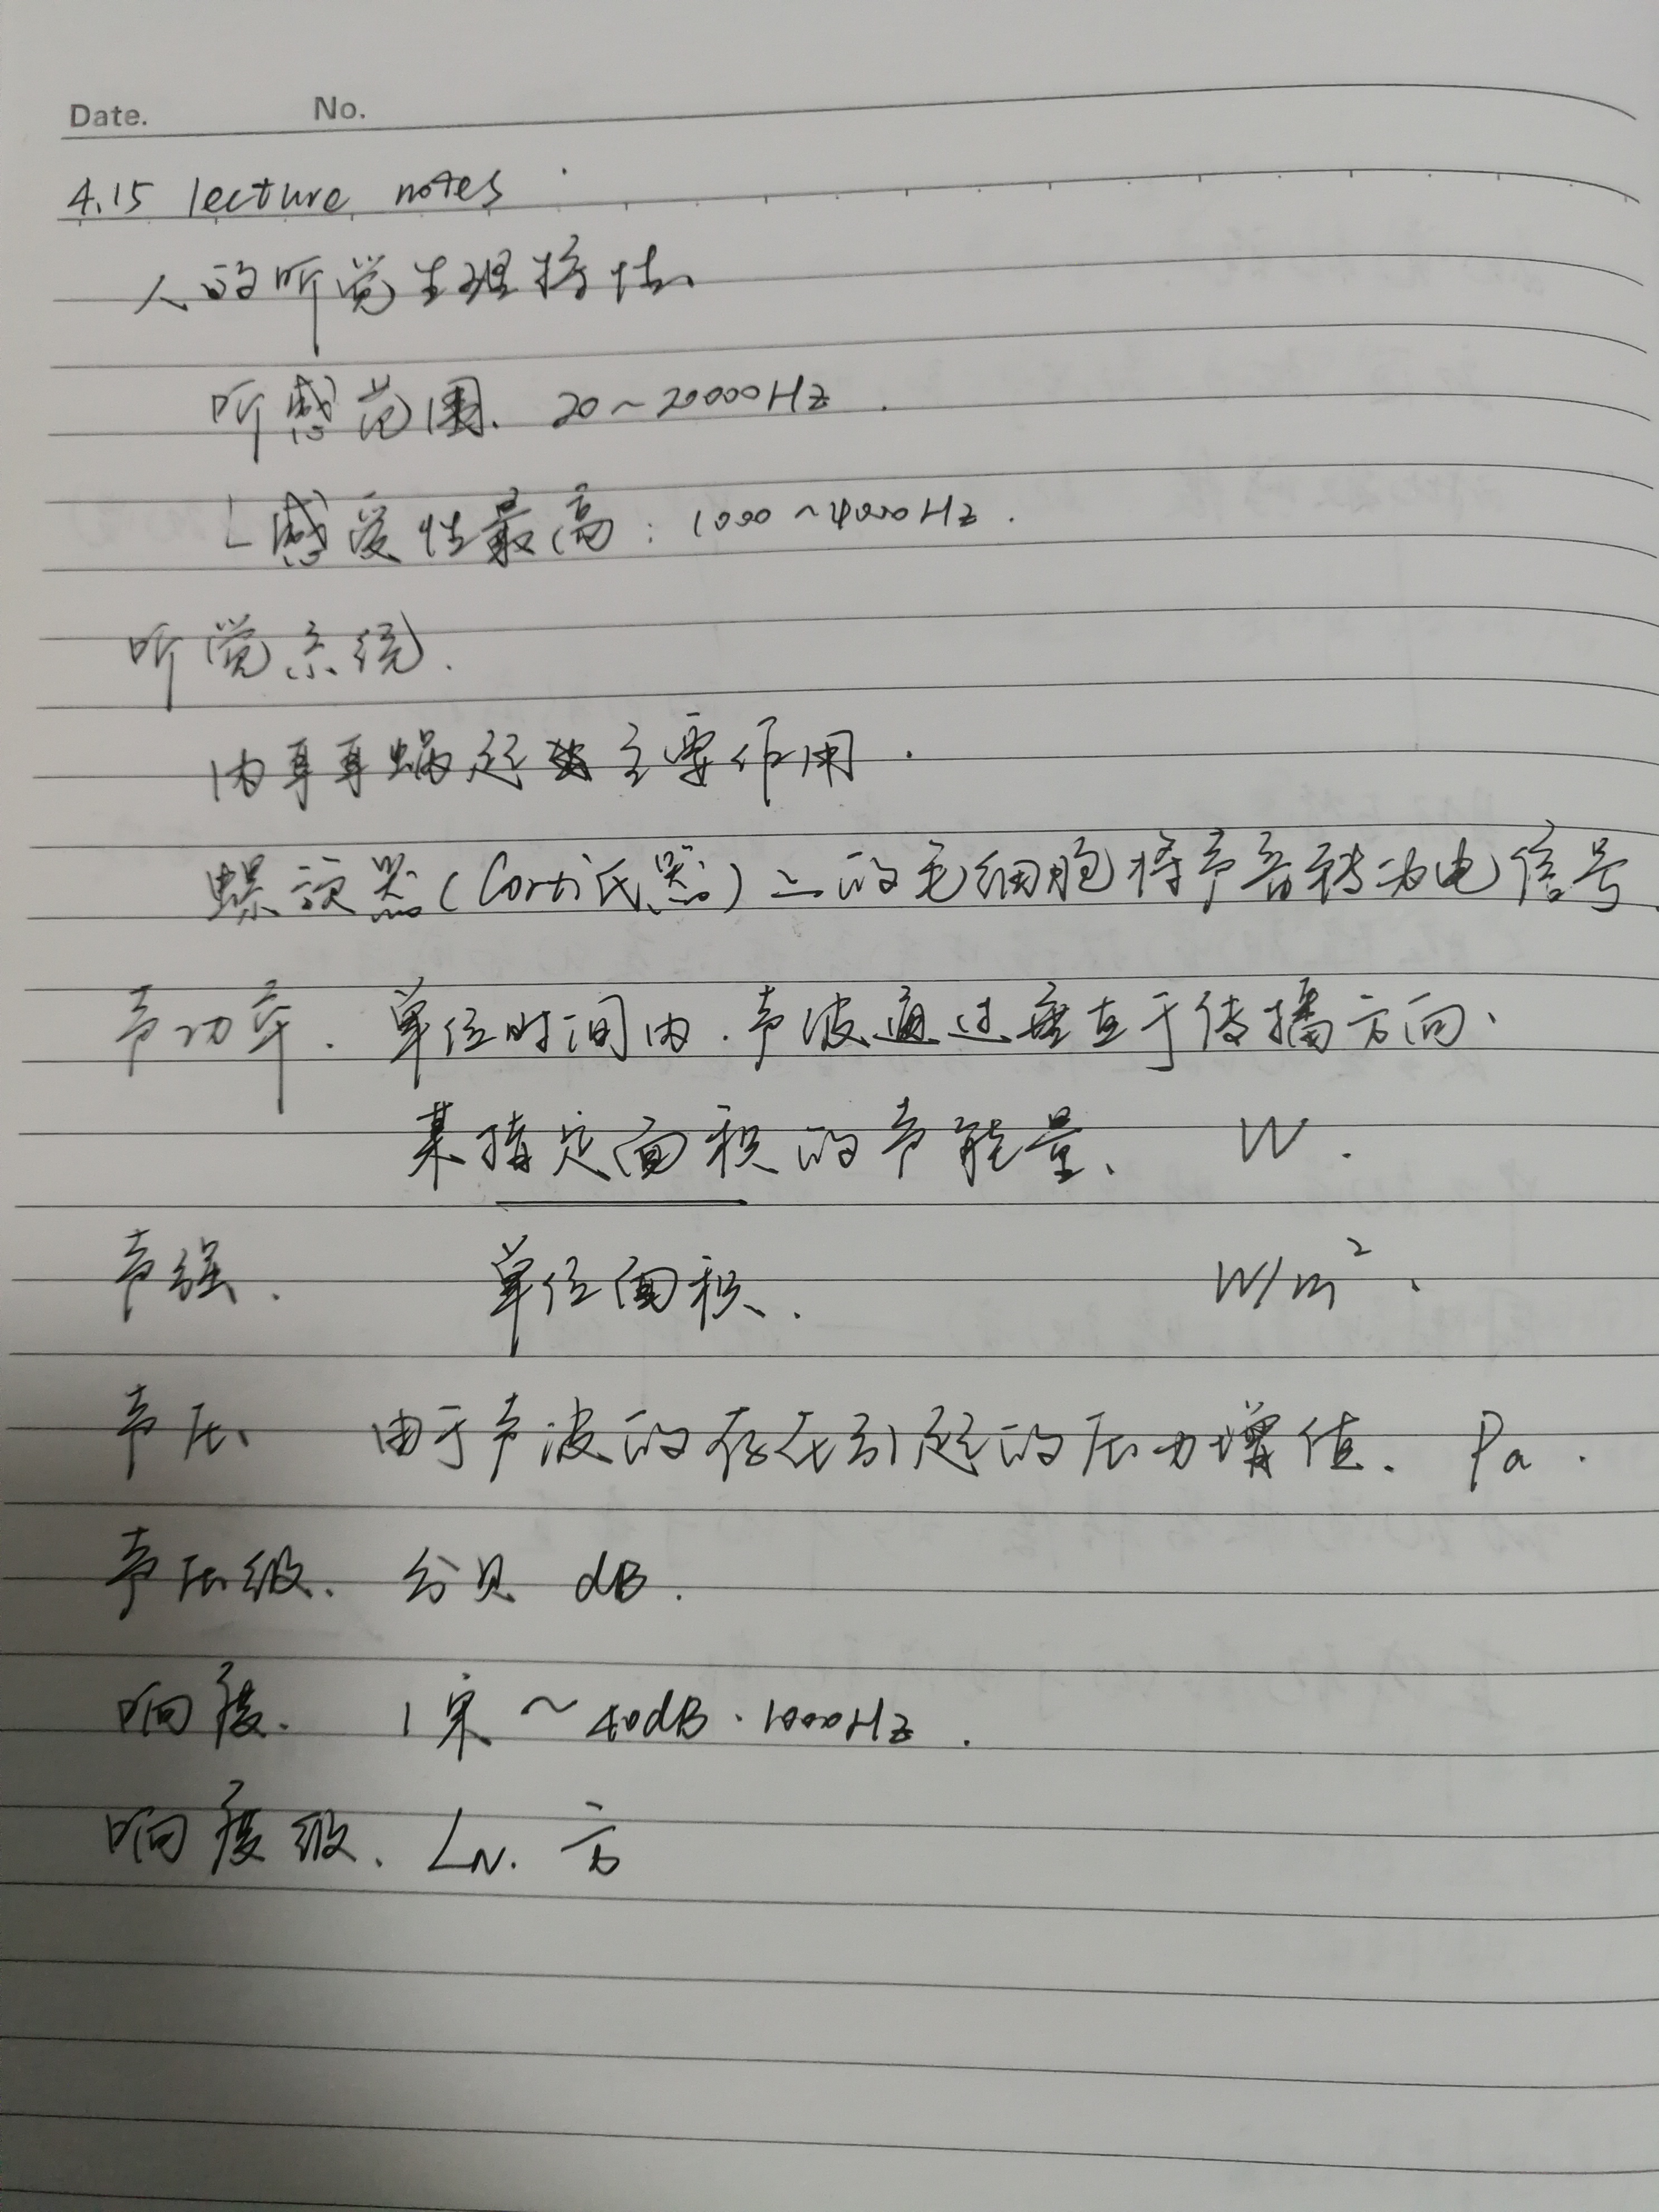 Date. No.
4.15 lecture notes
人的听觉生理特性、
听感范围. 20~20000Hz.
L感受性最高: 1000~4000Hz.
听觉系统.
内耳耳蜗起主要作用.
螺旋器(Corti氏器)上的毛细胞将声音转为电信号.
声功率. 单位时间内.声波通过垂直于传播方向、
某指定面积的声能量、 W.
声强. 单位面积. W/m²、
声压、 由于声波的存在引起的压力增值. Pa.
声压级. 分贝 dB.
响度. 1宋~40dB.1000Hz.
响度级、LN. 方